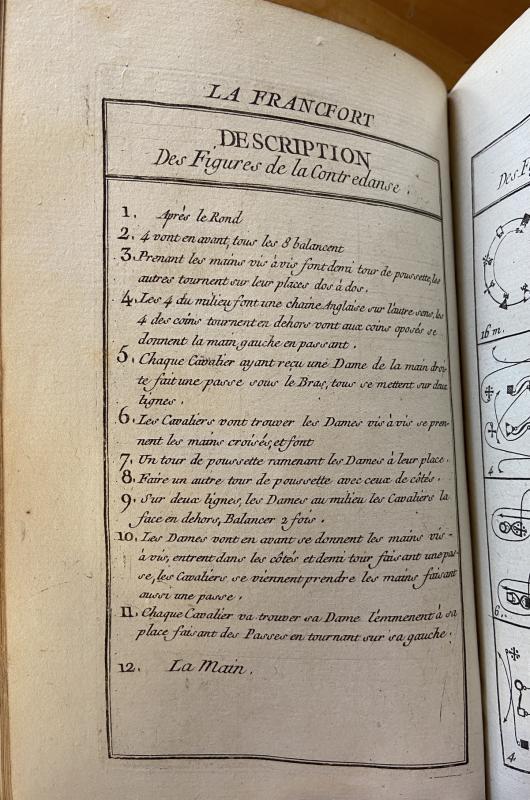 LA FRANCFORT
DESCRIPTION
Des Figures de la Contredanse.
1. Après le Rond
2. 4 vont en avant, tous les 8 balancent
3. Prenant les mains vis à vis font demi tour de poussette, les
autres tournent sur leur places dos à dos.
4. Les 4 du milieu font une chaine Anglaise sur l'autre sens, les
4 des coins tournent en dehors vont aux coins oposés se
donnent la main gauche en passant.
5. Chaque Cavalier ayant reçu une Dame de la main droi-
te fait une passe sous le Bras, tous se mettent sur deux
lignes.
6. Les Cavaliers vont trouver les Dames vis à vis se pren-
nent les mains croisés, et font
7. Un tour de poussette ramenant les Dames à leur place.
8. Faire un autre tour de poussette avec ceux de côtés.
9. Sur deux lignes, les Dames au milieu les Cavaliers la
face en dehors, Balancer 2 fois.
10. Les Dames vont en avant se donnent les mains vis -
à vis, entrent dans les côtés et demi tour faisant une pas-
se, les Cavaliers se viennent prendre les mains faisant
aussi une passe.
11. Chaque Cavalier va trouver sa Dame l'emmenent à sa
place faisant des Passes en tournant sur sa gauche.
12. La Main.
Des F
16 m.
4
6.
4.